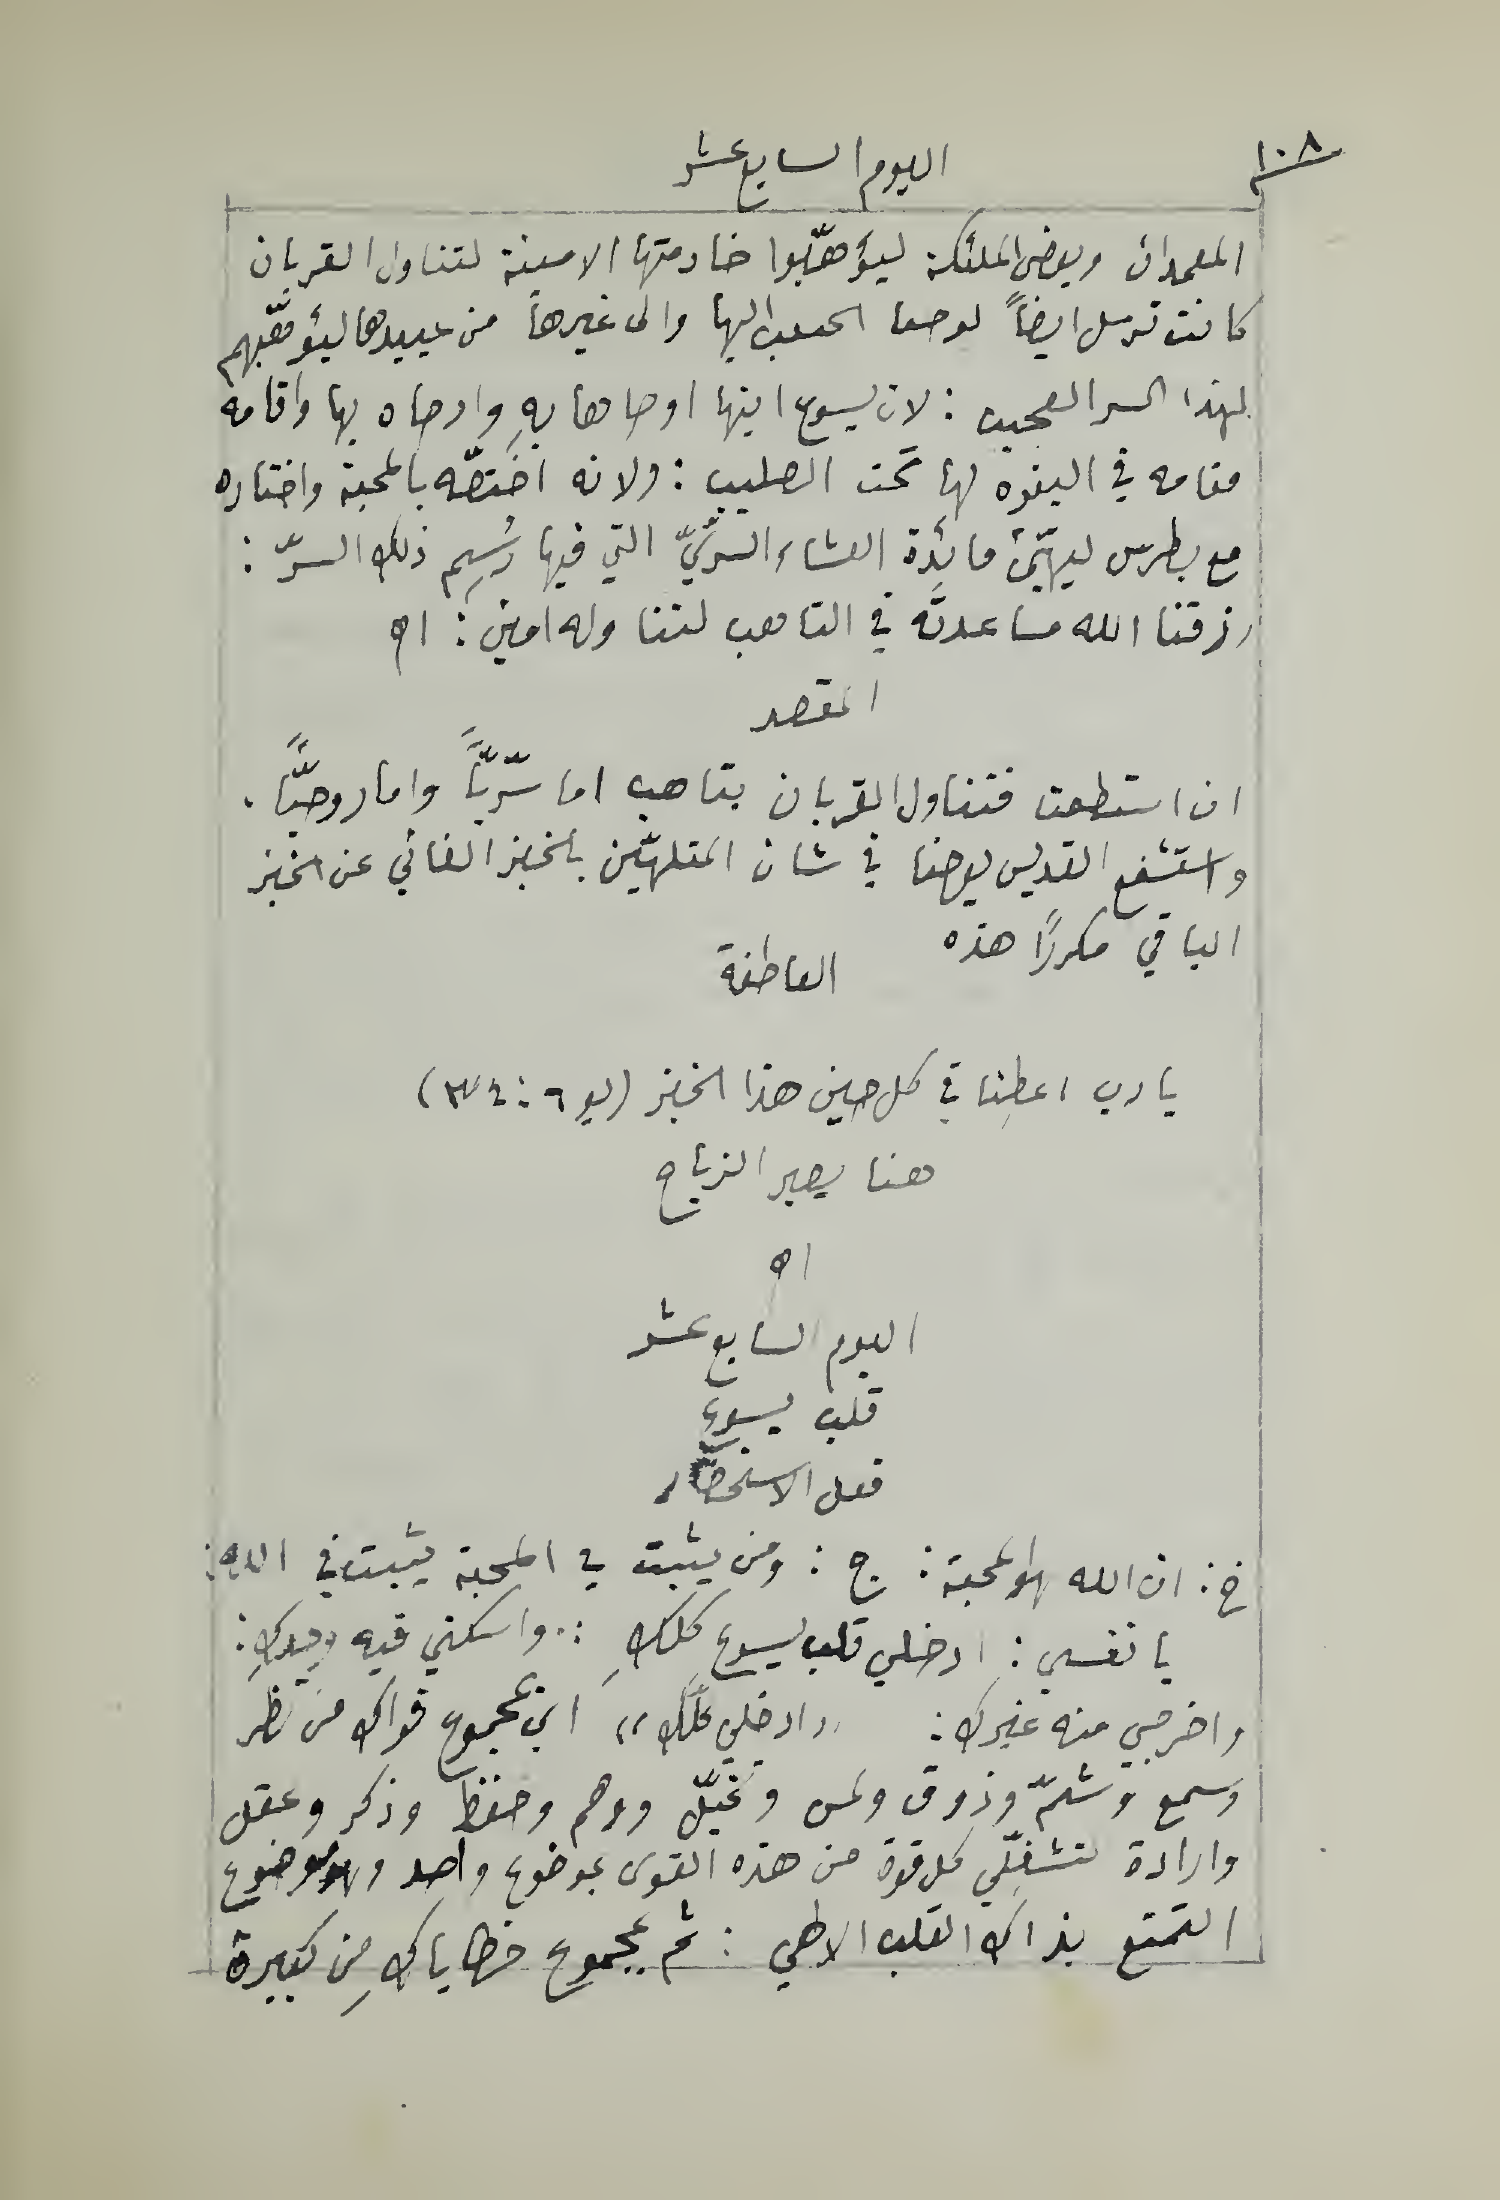 ١٠٨
اليوم السابع عشر
المعمدان وبعض الملئكة ليؤهّبوا خادمتها الامينة لتناول القربان
كانت ترسل ايضاً يوحنا الحبيب اليها والى غيرها من عبيدها ليؤهّبهم
لهذا السر العجيب : لان يسوع ابنها اوصاها بهِ واوصاه بها واقامه
مقامه في البنوه لها تحت الصليب : ولانه اختصّه بالمحبة واختاره
مع بطرس ليهيّئ مائدة العشاء السرّيّ التي فيها رُسِم ذلك السرّ :
رزقنا الله مساعدتَه في التاهب لتناوله امين : اه
المقصد
ان استطعت فتناول القربان بتاهب اما سّريّاً واما روحيّاً .
واستشفع القديس يوحنا في شان المتلهيّين بالخبز الفاني عن الخبز
الباقي مكررًا هذه
العاطفة
يارب اعطِنا في كل حين هذا الخبز (يو ٦ : ٣٤)
هنا يصير الزياح
اه
اليوم السابع عشر
قلب يسوع
فعل الاستحضار
خ : ان الله هو المحبة : ج : ومن يثبت في المحبة يثبت في الله :
يا نفسي : ادخلي قلب يسوع كلكِ : واسكني فيه وحدكِ :
واخرجي منه غيرك : ,, ادخلي كلّك ,, اي بمجموع قواك من نظر
وسمع وشمّ وذوق ولمس وتخيّل ووهم وحفظ وذكر وعقل
وارادة لتشغلّي كل قوة من هذه القوى بموضوع واحد وهو موضوع
التمتع بذاك القلب الالهي : ثم بمجموع خطاياكِ مِن كبيرة